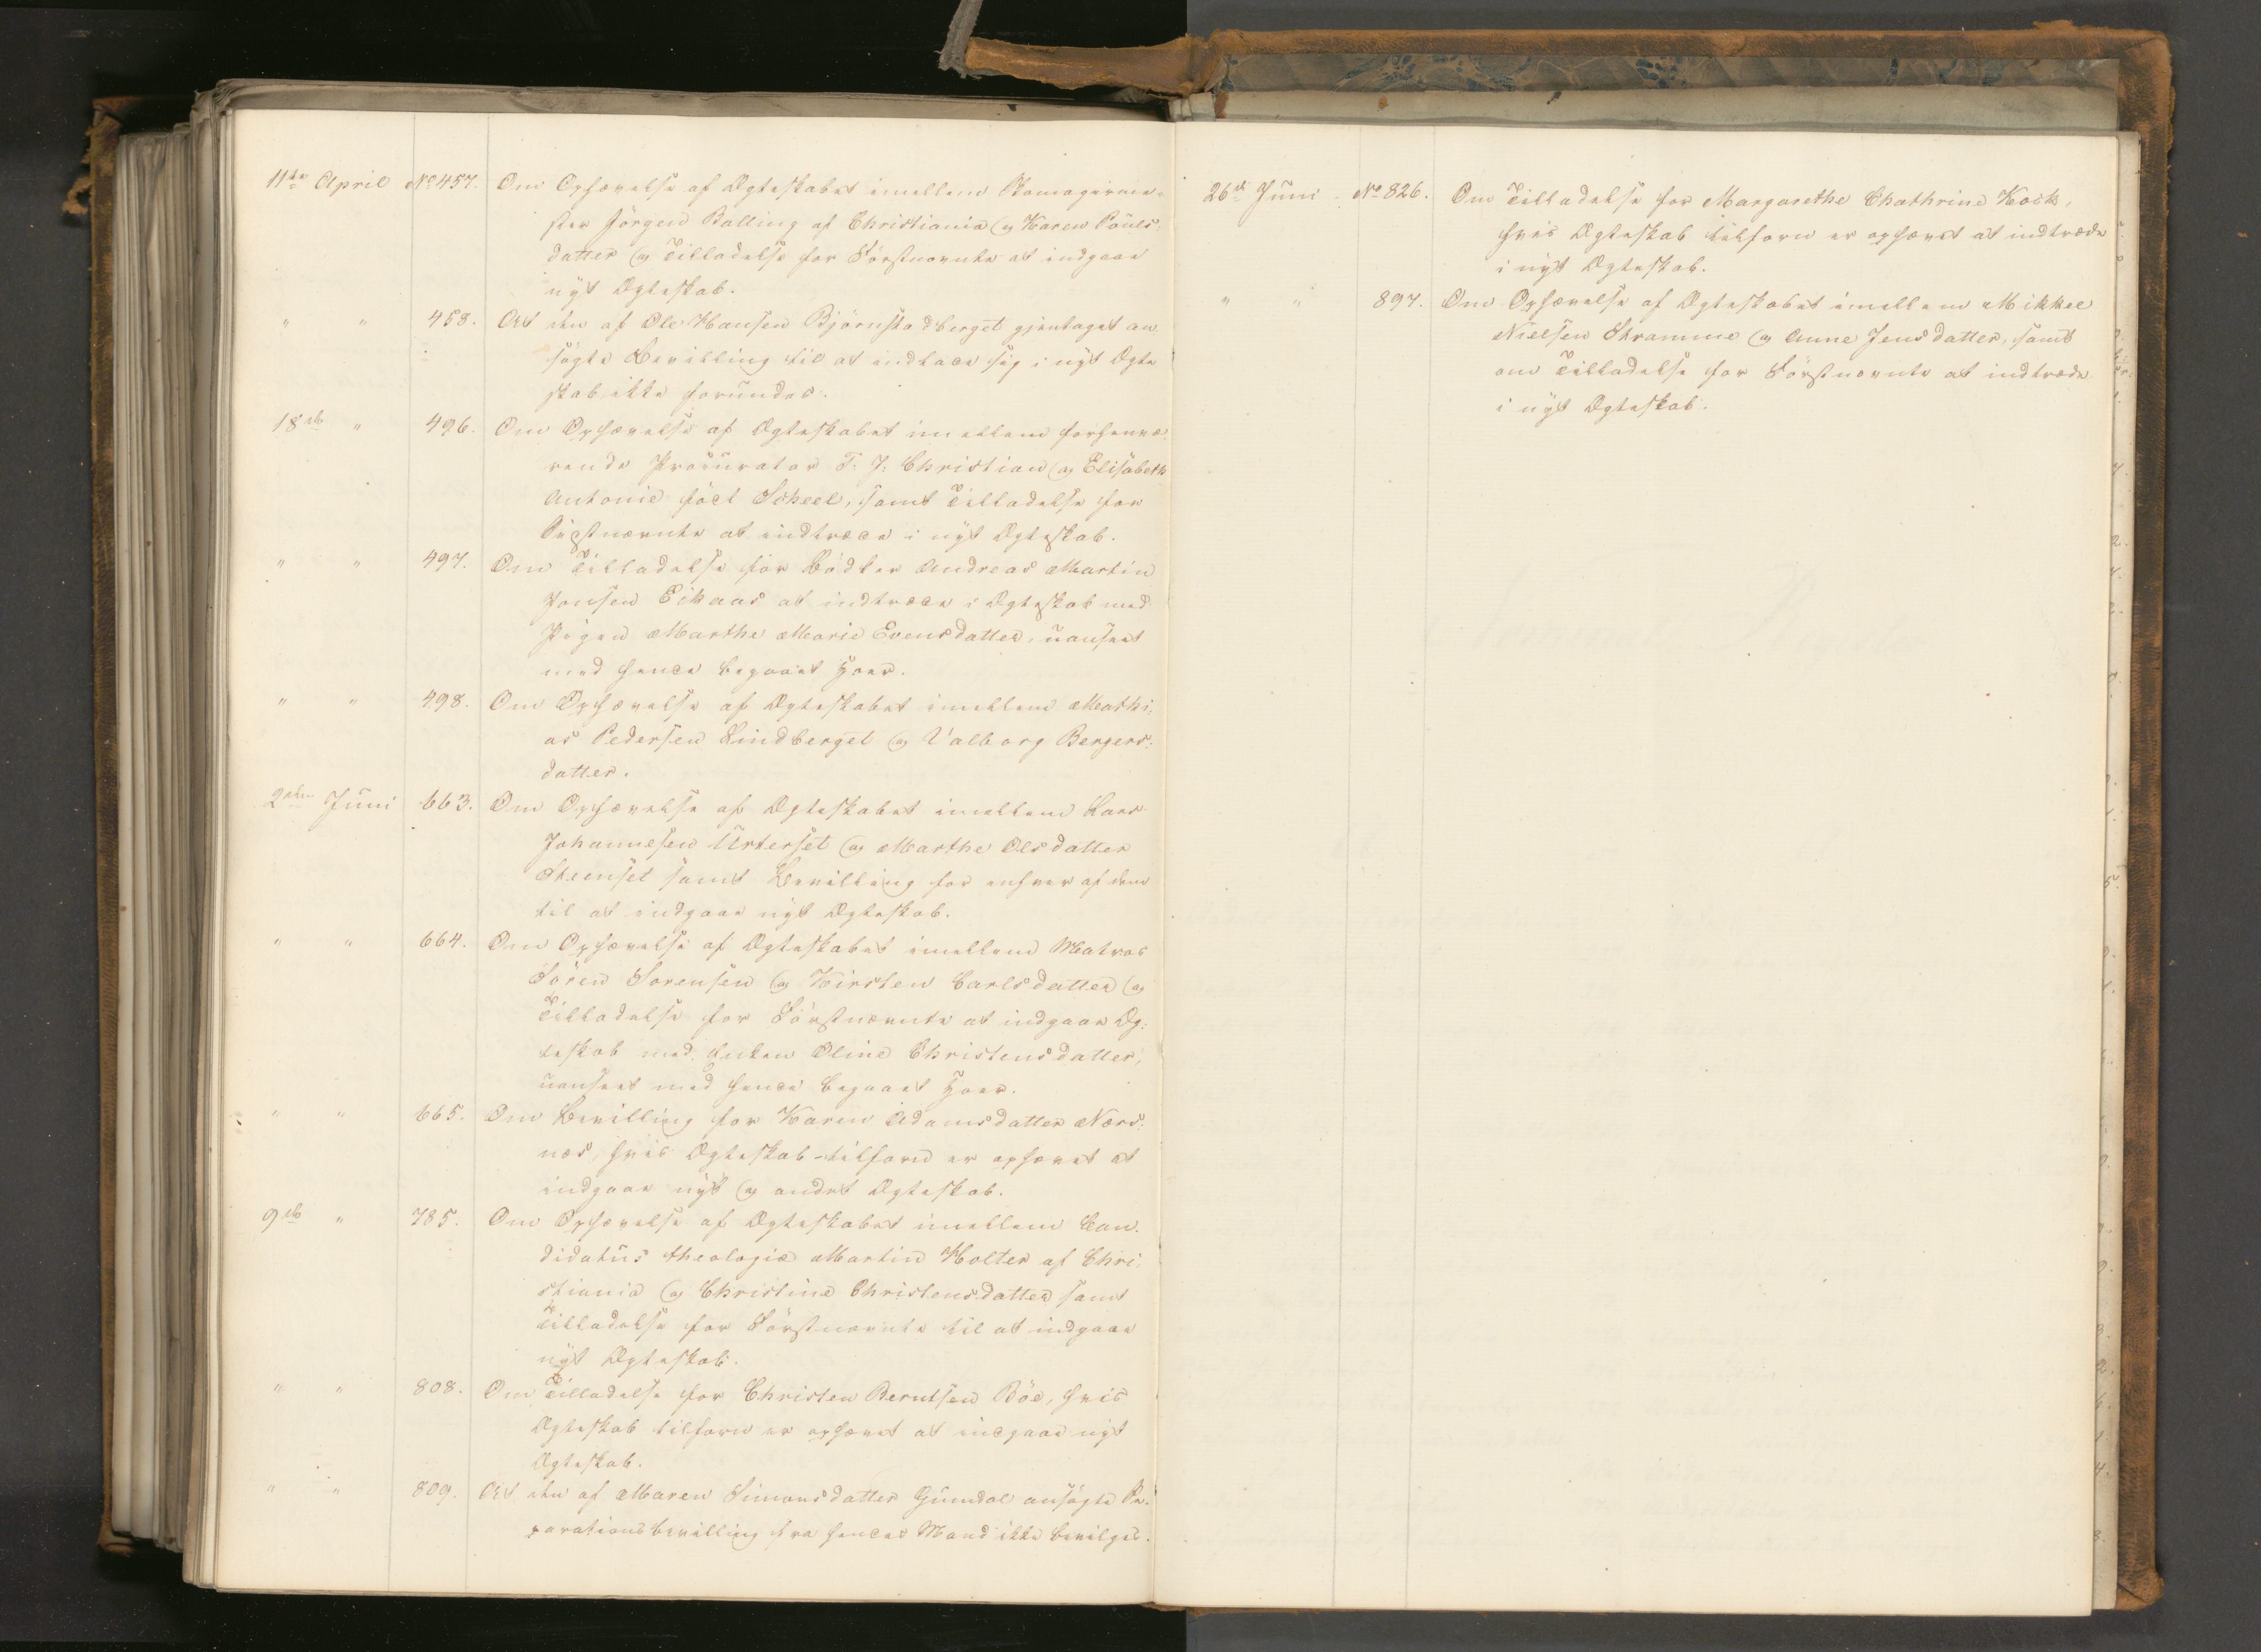 11te April No 457. Om Ophævelse af Ægteskabet imellem Skomagerme-
ster Jörgen Balling af Christiania og Karen Pouls-
datter og Tilladelse for Förstnævnte at indgaae
nyt Ægteskab.
" " 458. At den af Ole Hansen Björnstadberget gjentaget an-
søgte Bevilling til at indlade sig i nyt Ægte
skab ikke forundes.
18de " 496. Om Ophævelse af Ægteskabet imellem forhenvæ-
rende Procurator T. J. Christian og Elisabeth
Antonie föd Scheel, samt Tilladelse for
Sidstnævnte at indtræde i nyt Ægteskab.
" " 497. Om Tilladelse for Bödker Andreas Martin
Jonsen Eikaas at indtræde i Ægteskab med
Pigen Marthe Marie Evensdatter, uanseet
med hende begaaet Hoer.
" " 498. Om Ophævelse af Ægteskabet imellem Mathi-
as Pedersen Lindberget og Valborg Bergers-
datter.
2den Juni 663. Om Ophævelse af Ægteskabet imellem Lars
Johannesen Urterset og Marthe Olsdatter
Steenset samt Bevilling for enhver af dem
til at indgaae nyt Ægteskab.
" " 664. Om Ophævelse af Ægteskabet imellem Matros
Sören Sorensen og Kirsten Carlsdatter og
Tilladelse for Förstnævnte at indgaae Æg-
teskab med Enken Oline Christensdatter,
uanseet med hende begaaet Hoer.
" " 665. Om Bevilling for Karen Adamsdatter Nærs-
næs, hvis Ægteskab tilforn er ophævet at
indgaae nyt og andet Ægteskab.
9de " 785. Om Ophævelse af Ægteskabet imellem Can-
didatus theologiæ Martin Holter af Chri-
stiania og Christine Christensdatter samt
Tilladelse for Förstnævnte til at indgaae
nyt Ægteskab.
" " 808. Om Tilladelse for Christen Berntsen Böe, hvis
Ægteskab tilforn er ophævet at indgaae nyt
Ægteskab.
" " 809. At den af Maren Simonsdatter Gumdal ansögte Se-
parationsbevilling fra hendes Mand ikke bevilges.
26de Juni No 826. Om Tilladelse for Margarethe Chathrine Kock,
hvis Ægteskab tilforn er ophævet at indtræde
i nyt Ægteskab.
" " 897. Om Ophævelse af Ægteskabet imellem Mikkel
Nielsen Stramme og Anne Jensdatter, samt
om Tilladelse for Förstnævnte at indtræde
i nyt Ægteskab.